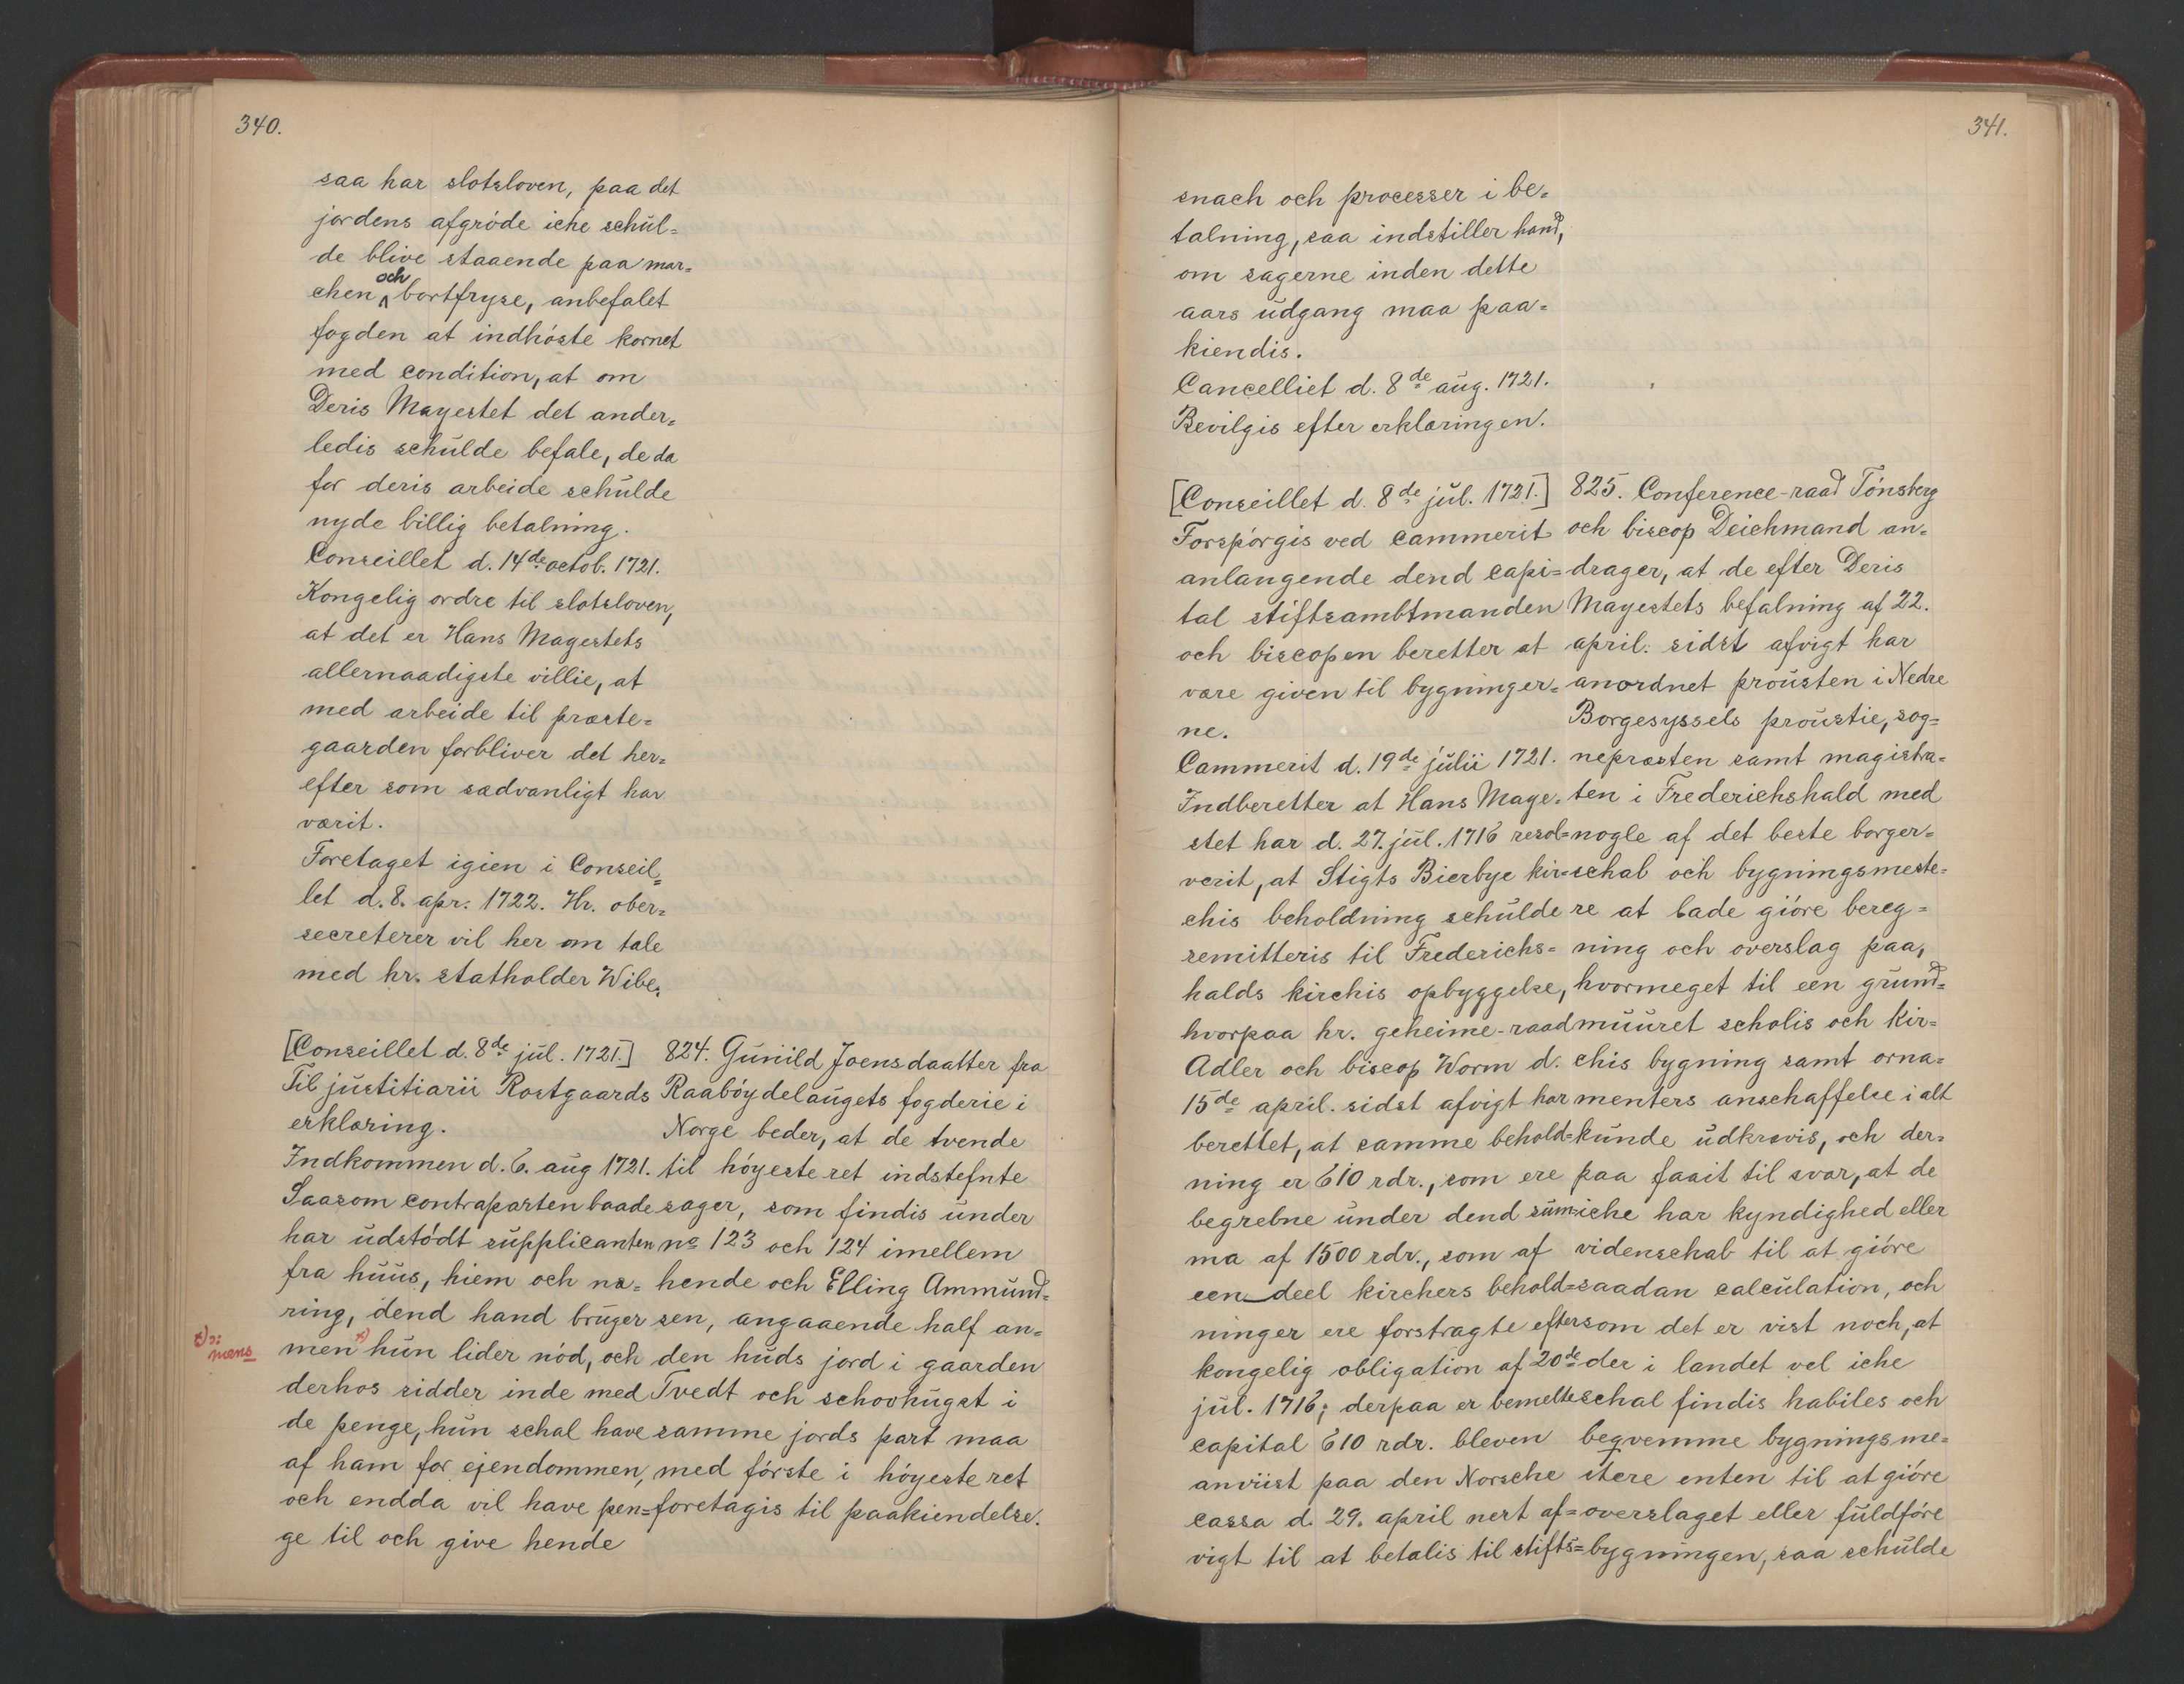 340.
saa har slotsloven, paa det
jordens afgróde iche schul=
de blive staaende paa mar=
chen och bortfryse, anbefalet
fogden at indhóste kornet
med condition, at om
Deris Mayestet det ander=
ledis schulde befale, de da
for deris arbeide schulde
nyde billig betalning.
Conseillet d. 14de octob. 1721.
Kongelig ordre til slotsloven,
at det er Hans Magestets
allernaadigste villie, at
med arbeide til præste=
gaarden forbliver det her=
efter som sædvanligt har
værit.
Foretaget igien i Conseil=
let d. 8. apr. 1722. Hr. ober=
secreterer vil her om tale
med hr. statholder Wibe.
[Conseillet d. 8de jul. 1721.]
Til justitiarii Rostgaards
erklæring.
Indkommen d. 6. aug 1721.
Saasom contraparten baade
har udstódt supplicanten
fra huus, hiem och næ=
ring, dend hand bruger
men x) hun lider nód, och
x) ɔ: mens
derhos sidder inde med
de penge, hun schal have
af ham for ejendommen,
och endda vil have pen=
ge til och give hende
824. Guniild Joensdaatter fra
Raabóydelaugets fogderie i
Norge beder, at de tvende
til hóyeste ret indstefnte
sager, som findis under
no 123 och 124 imellem
hende och Elling Ammund=
sen, angaaende half an=
den huds jord i gaarden
Tvedt och schovhugst i
samme jords part maa
med fórste i hóyeste ret
foretagis til paakiendelse.
341.
snach och processer i be=
talning, saa indstiller hand,
om sagerne inden dette
aars udgang maa paa=
kiendis.
Cancelliet d. 8de aug. 1721.
Bevilgis efter erklæringen.
[Conseillet d. 8de jul. 1721.]
Forspórgis ved cammerit
anlangende dend capi=
tal stiftsambtmanden
och biscopen beretter at
være given til bygninger=
ne.
Cammerit d. 19de julii 1721.
Indberetter at Hans Maye=
stet har d. 27. jul. 1716 resol=
verit, at Stigts Bierbye kir=
chis beholdning schulde
remitteris til Frederichs=
halds kirchis opbyggelse,
hvorpaa hr. geheime-raad
Adler och biscop Worm d.
15de april. sidst afvigt har
berettet, at samme behold=
ning er 610 rdr., som ere
begrebne under dend sum=
ma af 1500 rdr., som af
een deel kirchers behold=
ninger ere forstragte efter
kongelig obligation af 20de
jul. 1716; derpaa er bemelte
capital 610 rdr. bleven
anviist paa den Norsche
cassa d. 29. april nest af=
vigt til at betalis til stifts=
825. Conference-raad Tónsberg
och biscop Deichmand an=
drager, at de efter Deris
Mayestets befalning af 22.
april. sidst afvigt har
anordnet prousten i Nedre
Borgesyssels proustie, sog=
nepræsten samt magistra=
ten i Frederichshald med
nogle af det beste borger=
schab och bygningsmeste=
re at lade gióre bereg=
ning och overslag paa,
hvormeget til een grund=
muuret scholis och kir=
chis bygning samt orna=
menters anschaffelse i alt
kunde udkrævis, och der=
paa faait til svar, at de
iche har kyndighed eller
videnschab til at gióre
saadan calculation, och
som det er vist noch, at
der i landet vel iche
schal findis habiles och
beqvemme bygningsme=
stere enten til at gióre
overslaget eller fuldfóre
bygningen, saa schulde